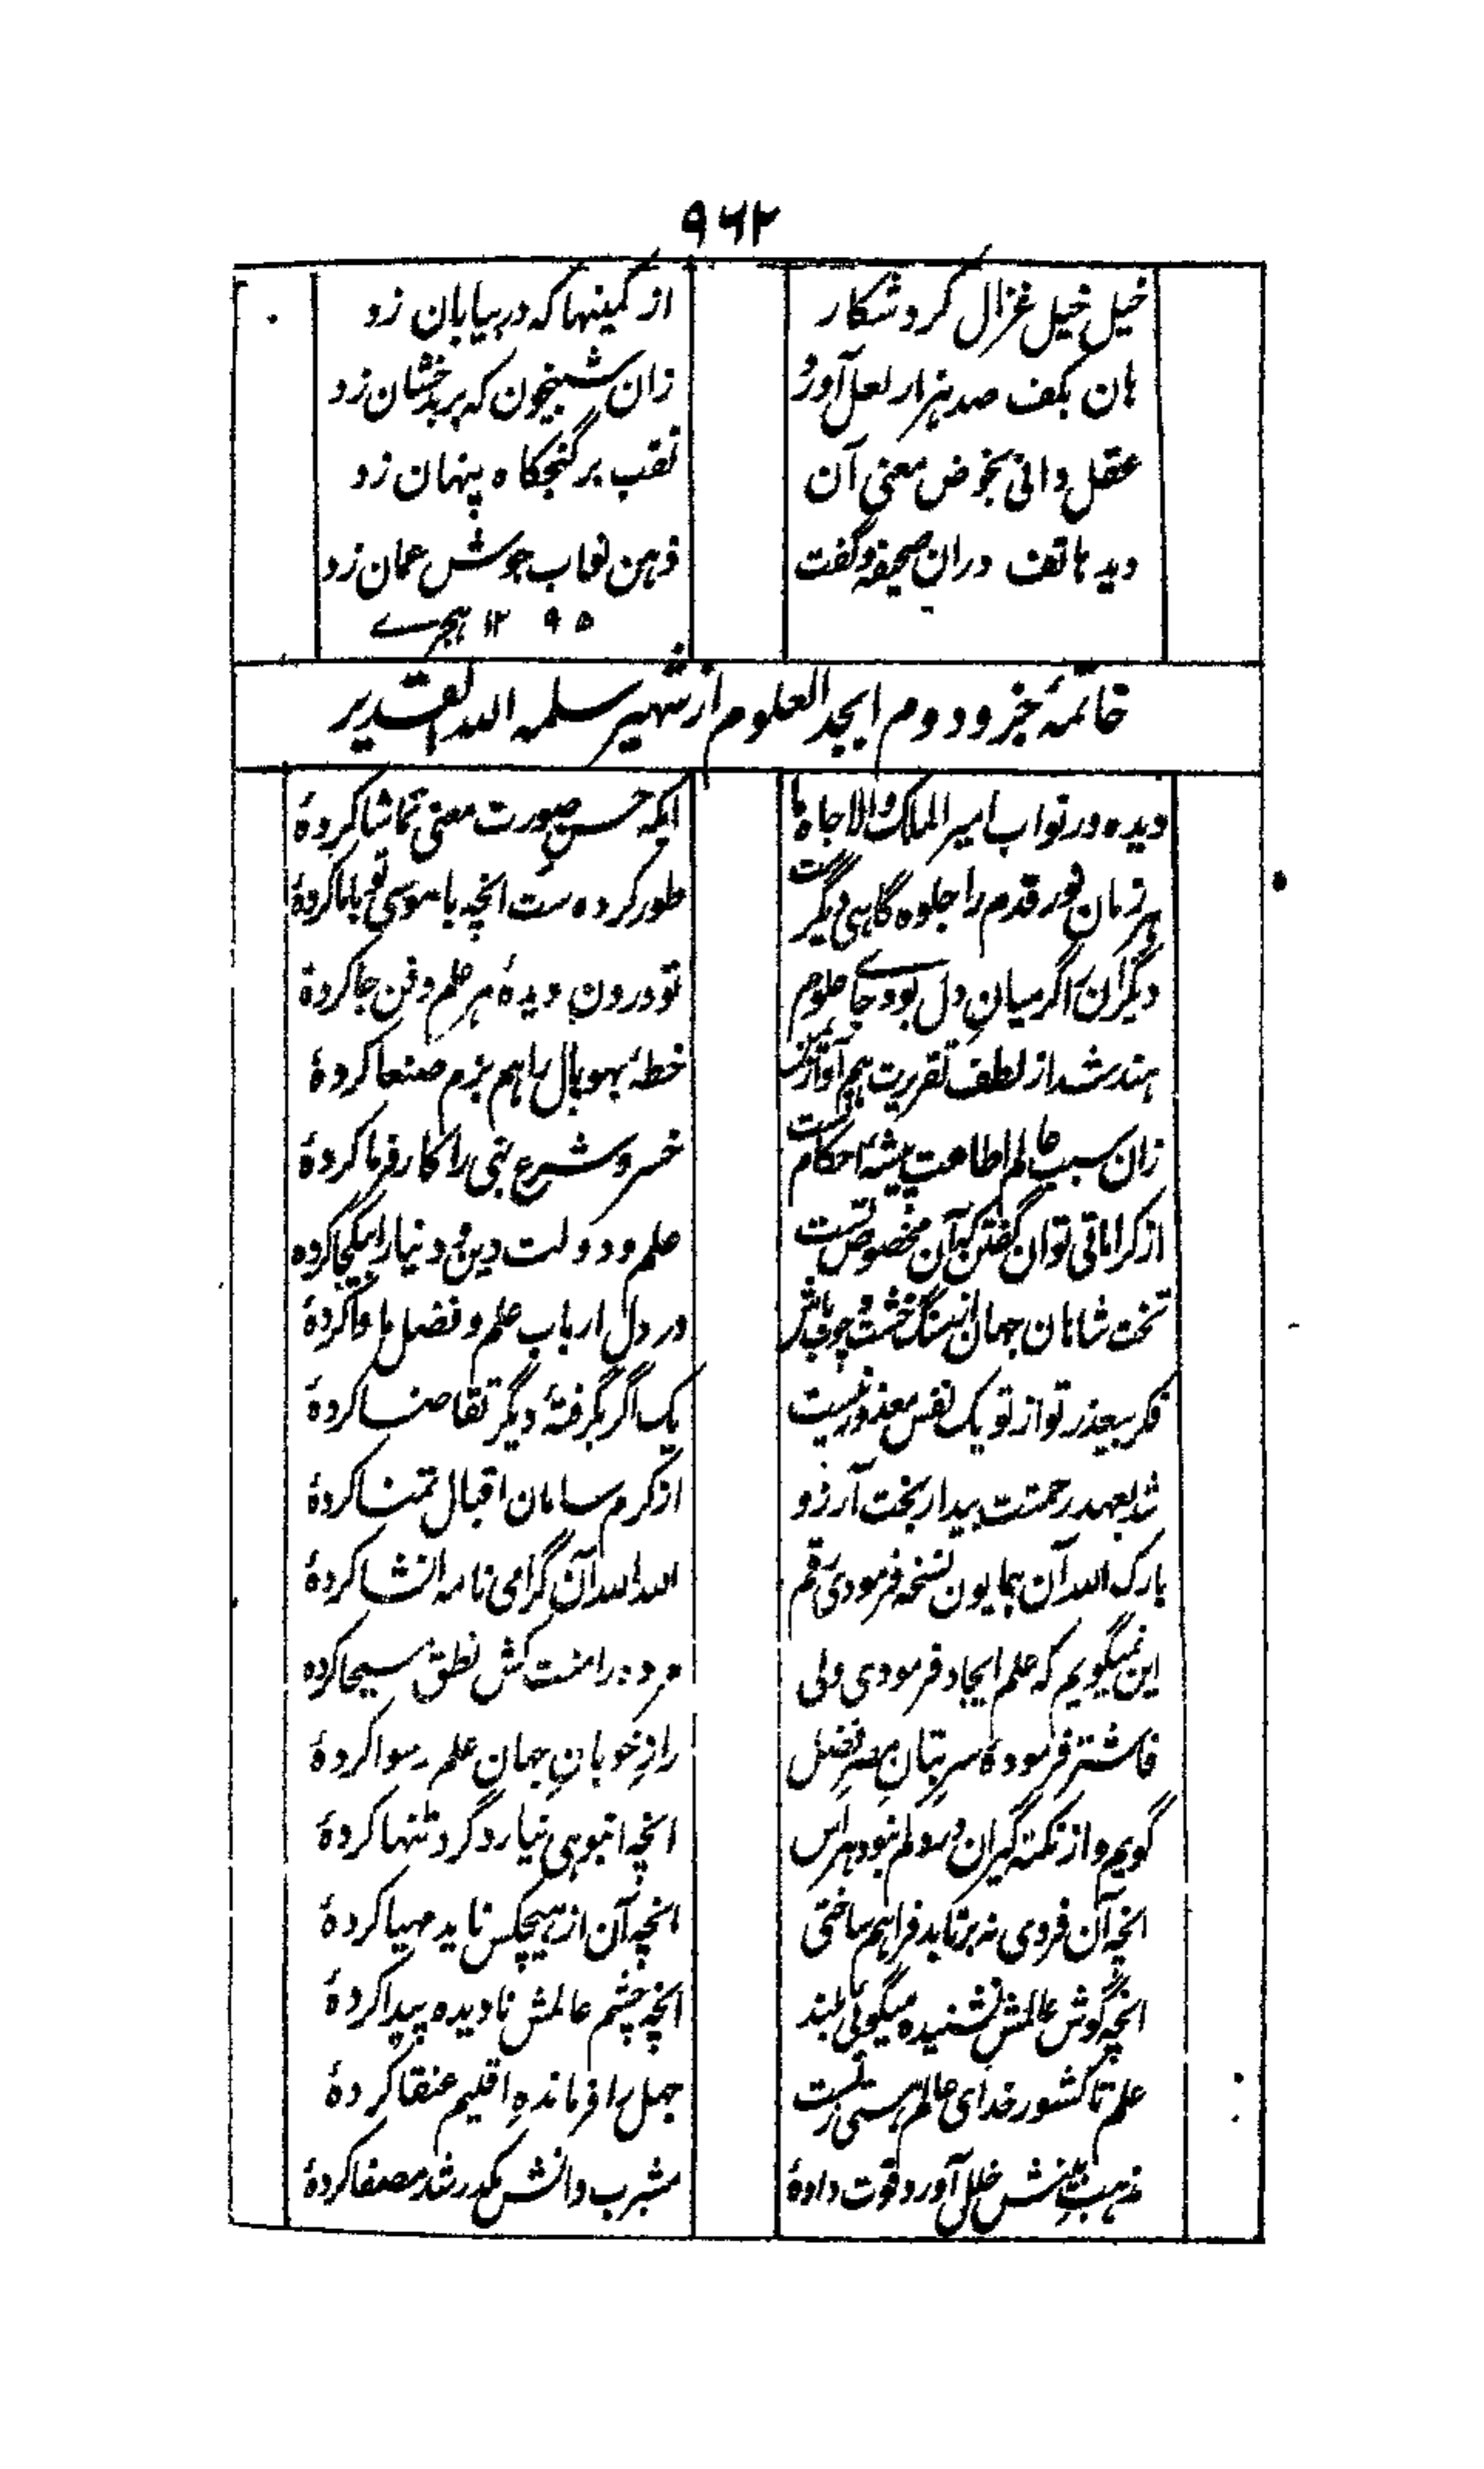 ٩٦٢
خیل خیل غزال کرد شکار از کمینها که در بیابان زد
هان بکف صد هزار لعل آورد زان شبیخون که بر بدخشان زد
عقل دانی بخوض معنی آن نقب بر گنجگاه پنهان زد
دید هاتف دران صحیفه و گفت ذهن نواب جوش عمان زد
۱۲۹۵ ہجرے
خاتمهٔ جزو دوم ابجد العلوم از شهیر سلمه الله القدیر
دیده ور نواب امیر الملک والا جاه ما ایکه حسن صورت معنی تماشا کردهٔ
هر زمان نور قدم را جلوه گاهی دیگرست طور کرده ست انچه با موسی تو با ما کردهٔ
دیگران را گر میان دل بود جاے علوم تو درون دیدهٔ هر علم و فن جا کردهٔ
هند شد از لطف تقریرت هم آواز یمن خطهٔ بهوپال را هم بزم صنعا کردهٔ
زان سبب عالم اطاعت پیشهٔ احکام تست خسرو شرع نبی را کارفرما کردهٔ
از کراماتی توان گفتن که آن مخصوص تست علم و دولت دین و دنیا را بیکجا کرده
تخت شاهان جهان از سنگ و خشت و چوب باش در دل ارباب علم و فضل ماوا کردهٔ
فکر بیعذر تو از تو یک نفس معذور نیست یک اگر بگرفتهٔ دیگر تقاضا کردهٔ
شد بعهد رحمتت بیدار بخت آرزو از کرم سامان اقبال تمنا کردهٔ
بارک الله آن همایون نسخه فرمودی رقم الله الله آن گرامی نامه انشا کردهٔ
این نمیگویم که علم ایجاد فرمودی ولی مرده را منت کش نطق مسیحا کرده
فاشتر فرمودهٔ سر بتان مصر فضل راز خوبان جهان علم رسوا کردهٔ
گویم و از نکته گیران در دلم نبود هراس انچه انبوهی نیارد کرد تنها کردهٔ
انچه آن فردی نه برتابد فراهم ساختی انچه آن از هیچکس ناید مهیا کردهٔ
انچه گوش عالمش نشنیده میگویی بلند انچه چشم عالمش نادیده پیدا کردهٔ
علم تا کشور خدای عالم هستی ز تست جهل را فرمانده اقلیم عنقا کردهٔ
مذهب بینش خلل آورد قوت دادهٔ مشرب دانش مکدر شد مصفا کردهٔ